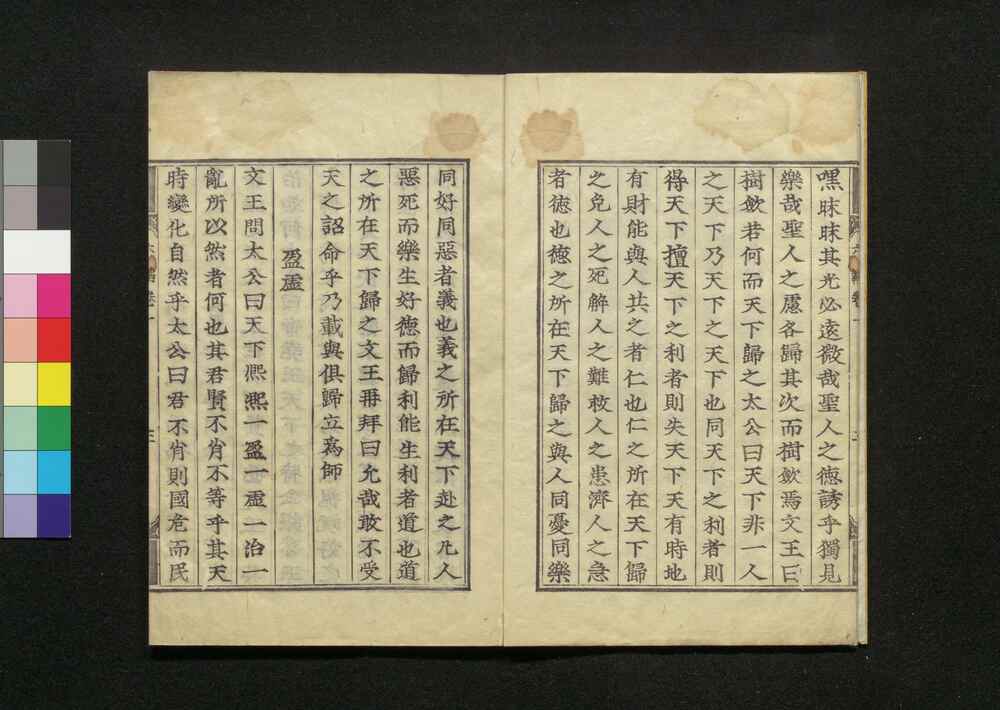 嘿昧昧其光必遠微哉聖人之德誘乎獨見
樂哉聖人之慮各歸其次而樹歛焉文王曰
樹歛若何而天下歸之太公曰天下非一人
之天下乃天下之天下也同天下之利者則
得天下擅天下之利者則失天下天有時地
有財能與人共之者仁也仁之所在天下歸
之免人之死解人之難救人之患濟人之急
者德也德之所在天下歸之與人同憂同樂
同好同惡者義也義之所在天下赴之凡人
惡死而樂生好德而歸利能生利者道也道
之所在天下歸之文王再拜曰允哉敢不受
天之詔命乎乃載與俱歸立爲師
盈虛
文王問太公曰天下熈熈一盈一虛一治一
亂所以然者何也其君賢不肖不等乎其天
時變化自然乎太公曰君不肖則國危而民